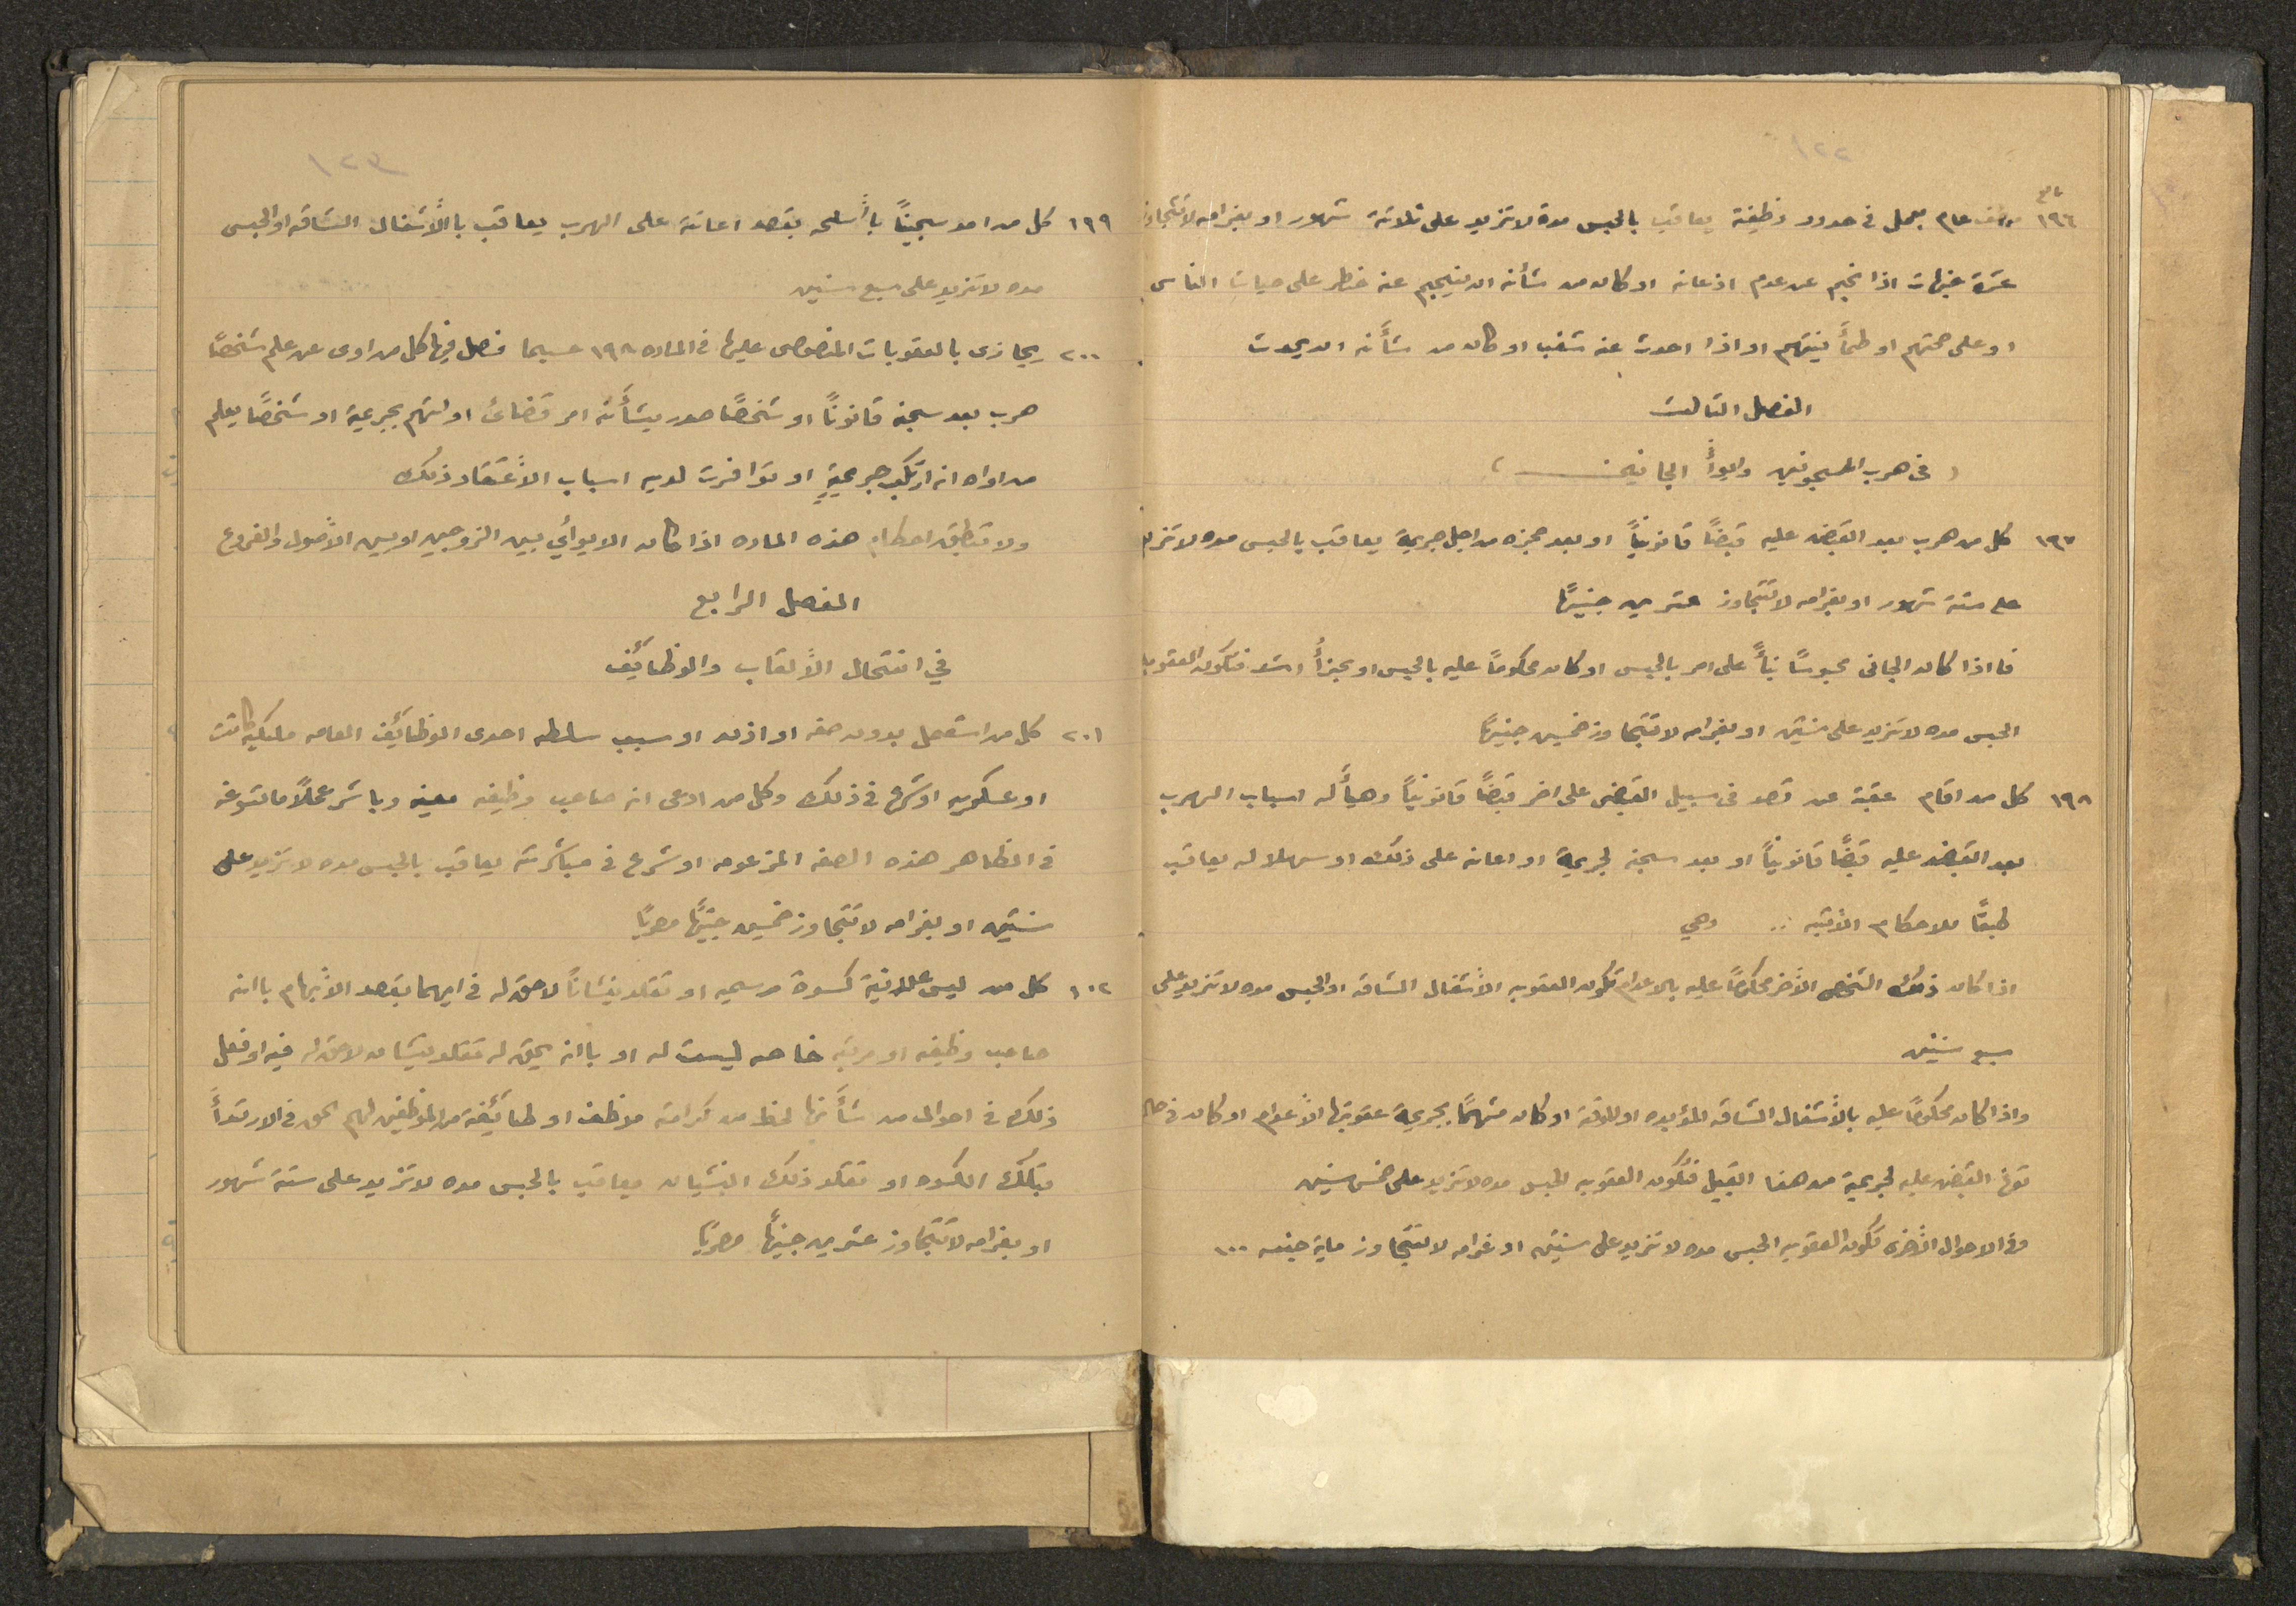 ١٢٢
تابع
١٩٦ موظف عام يعمل في حدود وظيفة يعاقب بالحبس مدة لا تزيد على ثلاثة شهور او بغرامه لا تتجاوز
عشرة جنيهات اذا نجم عن عدم اذعانه او كان من شأنه ان ينجم عنه خطر على حيات الناس
او على صحتهم او طمأنينتهم او اذا احدث عنه شغب او كان من شأنه ان يحدث
الفصل الثالث
( في هرب المسجونين وايوأ الجانين )
١٩٧ كل من هرب بعد القبض عليه قبضًا قانونيًا او بعد حجزه من اجل جريمة يعاقب بالحبس مده لا تزيد
على ستة شهور او بغرامه لا تتجاوز عشرين جنيهًا
فا اذا كان الجانى محبوسًا بنأً على امر بالحبس او كان محكومًا عليه بالحبس او بجزأ اشد فتكون العقوبه
الحبس مده لا تزيد على سنتين او بغرامه لا تتجاوز خمسين جنيهًا
١٩٨ كل من اقام عقبة عن قصد في سبيل القبض على اخر قبضًا قانونيًا وهيأ له اسباب الهرب
بعد القبض عليه قبضًا قانونيًا او بعد سجنه لجريمة او اعانه على ذلك او سهلا له يعاقب
طبقًا للاحكام الأتيه .. وهي
اذا كان ذلك الشخص الأخر محكومًا عليه بالاعدام تكون العقوبه الأشغال الشاقه او الحبس مده لا تزيد على
سبع سنين
واذا كان محكومًا عليه بالأشغال الشاقه المؤبده او المؤقتة او كان متهمًا بجريمة عقوبتها الأعدام او كان في حاله
توفر القبض عليه لجريمة من هذا القبيل فتكون العقوبه الحبس مده لا تزيد على خمس سنين
وفي الاحوال الأخرى تكون العقوبه الحبس مده لا تزيد على سنتين او غرامه لا تتجاوز ماية جنيه ١٠٠
١٢٣
١٩٩ كل من امد سجينًا باأسلحه بقصد اعانته على الهرب يعاقب باالأشغال الشاقه او الحبس
مده لا تزيد على سبع سنين
٢٠٠ يجازى بالعقوبات المنصوص عليها في الماده ١٩٨ حسبما فصل فيها كل من اوى عن علم شخصًا
هرب بعد سجنه قانونًا او شخصًا صدر بشأنه امر قضائى او اتهم بجريمة او شخصًا يعلم
من اواه انه ارتكب جريمةٍ او توافرت لديه اسباب الأعتقاد ذلك
ولا تنطبق احكام هذه الماده اذا كان الايوأي بين الزوجين او بين الأصول والفروع
الفصل الرابع
في انتحال الألقاب والوظائف
٢٠١ كل من استعمل بدون صفه او اذن او سبب سلطه احدى الوظائف العامه ملكيه كانت
او عسكريه او شرع في ذلك وكل من ادعى انه صاحب وظيفه معينه وباشر عملاً ما تسوغه
في الظاهر هذه الصفه المزعومه او شرع في مباشرته يعاقب بالحبس مده لا تزيد على
سنتين او بغرامه لا تتجاوز خمسين جنيهًا مصريًا
١٠٢ كل من لبس علانية كسوة رسميه او تقلد نيشانًا لا حق له في ايهما بقصد الأيهام باانه
صاحب وظيفه او مرتبه خاصه ليست له او باانه يحق له تقلد نيشان لا حق له فيه او فعل
ذلك في احوال من شأنها لحط من كرامة موظف او طائفة من الموظفين لهم الحق في الارتدأ
بتلك الكسوه او تقلد ذلك النيشان يعاقب بالحبس مده لا تزيد على ستة شهور
او بغرامه لا تتجاوز عشرين جنيهًا مصريًا